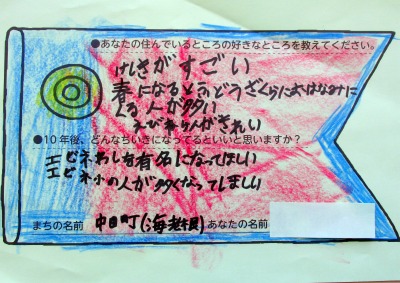 ●あなたの住んでいるところの好きなところを教えてください。
けしきがすごい
春になるとふどうざくらにおはなみに
くる人が多い
えびね和人がきれい
●10年後、どんなちいきになってるといいと思いますか?
エビネわしを有名になってほしい
エビネ小の人が多くなってしほしい
まちの名前 中田町(海老根) あなたの名前